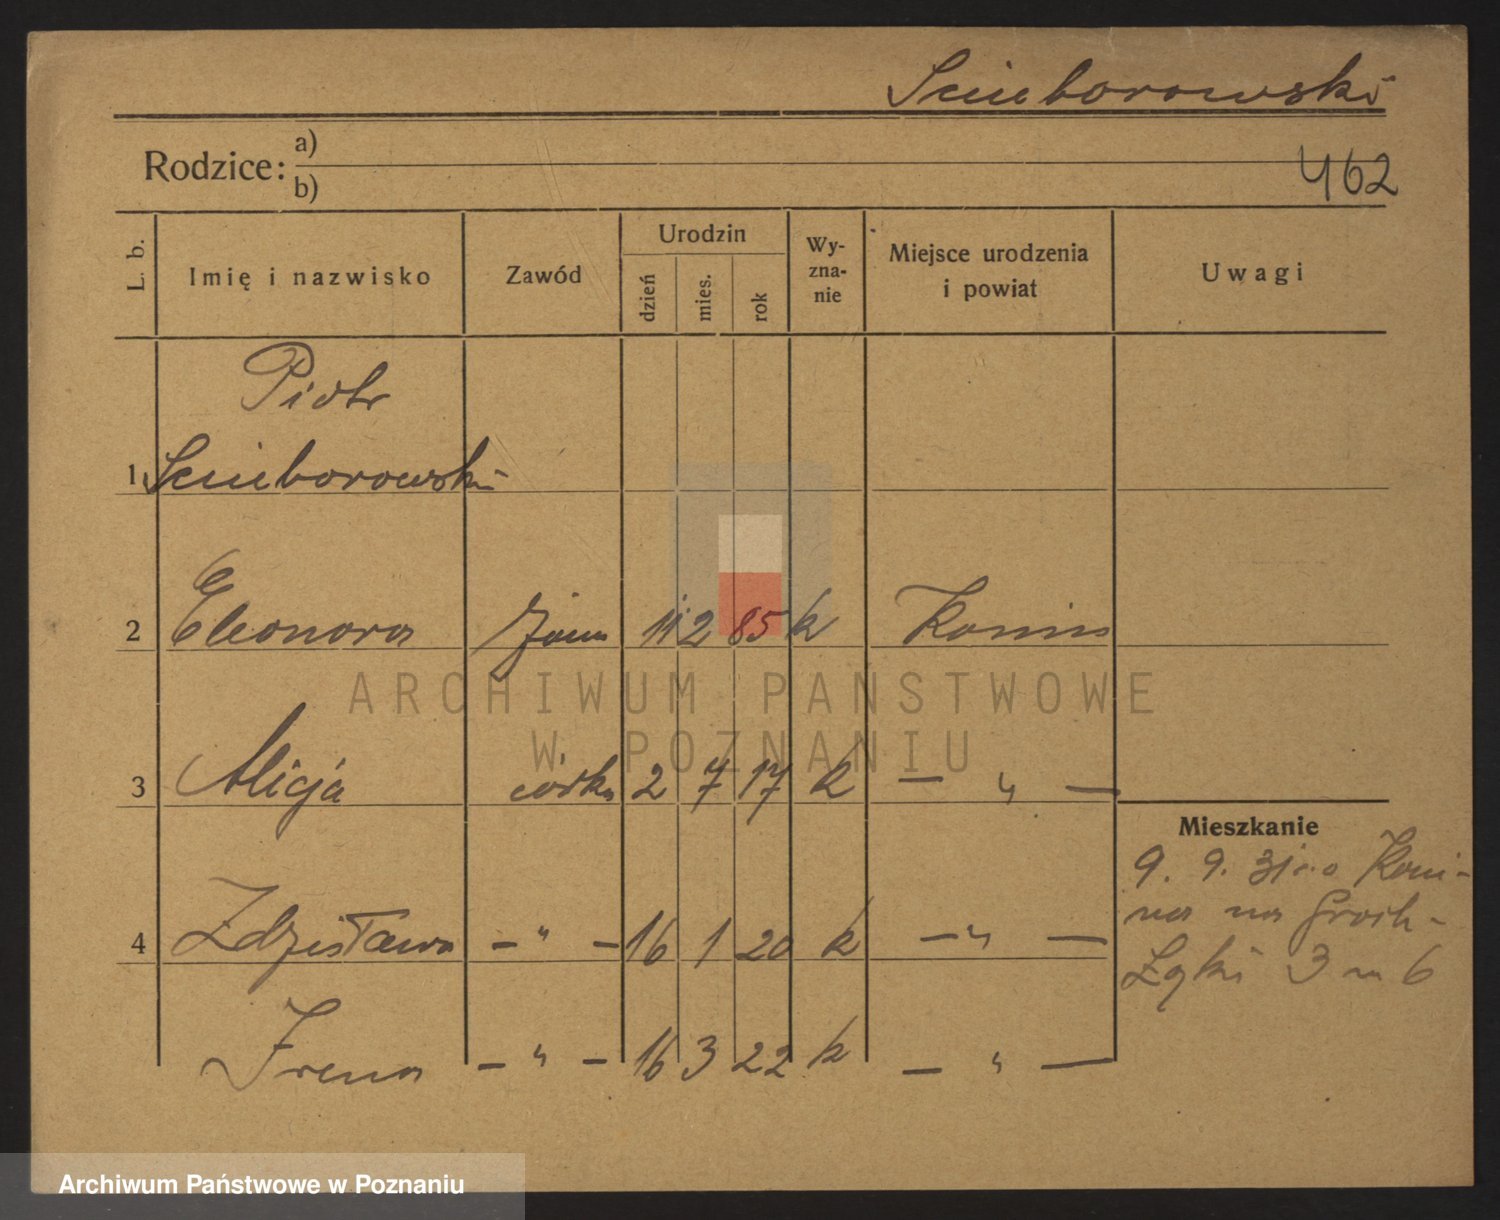 Sciuborowski
Rodzice: a)
b)
462
L. b.
Imię i nazwisko
Zawód
Urodzin
dzień
mies.
rok
Wy-
zna-
nie
Miejsce urodzenia
i powiat
Uwagi
Piotr
1 Sciuborowski
2 Eleonora żona 11 2 85 k Konin
3 Alicja córka 2 7 17 k — " —
Mieszkanie
4 Zdzisława — " — 16 1 20 k — " —
9. 9. 31 Koni-
na na Groch.
Łąki 3 m 6
Irena — " — 16 3 22 k — " —
ARCHIWUM PAŃSTWOWE
W POZNANIU
Archiwum Państwowe w Poznaniu